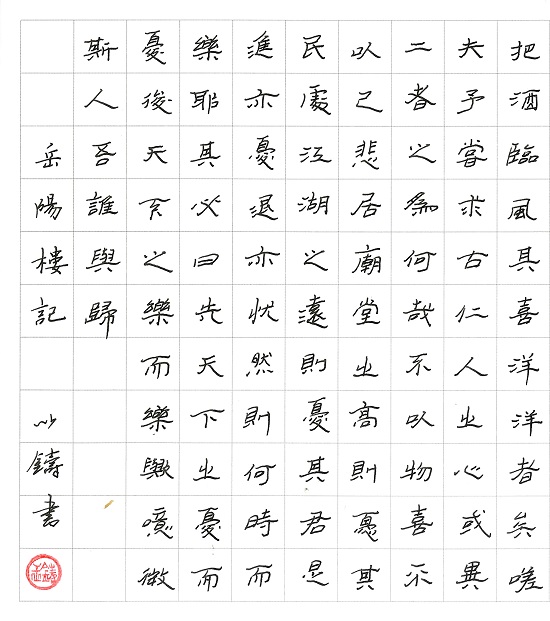 把酒臨風其喜洋洋者矣嗟
夫予嘗求古仁人之心或異
二者之為何哉不以物喜不
以己悲居廟堂之高則憂其
民處江湖之遠則憂其君是
進亦憂退亦忧然則何時而
樂耶其必曰先天下之憂而
憂後天下之樂而樂歟噫微
斯人吾誰與歸
岳陽樓記 以鑄書